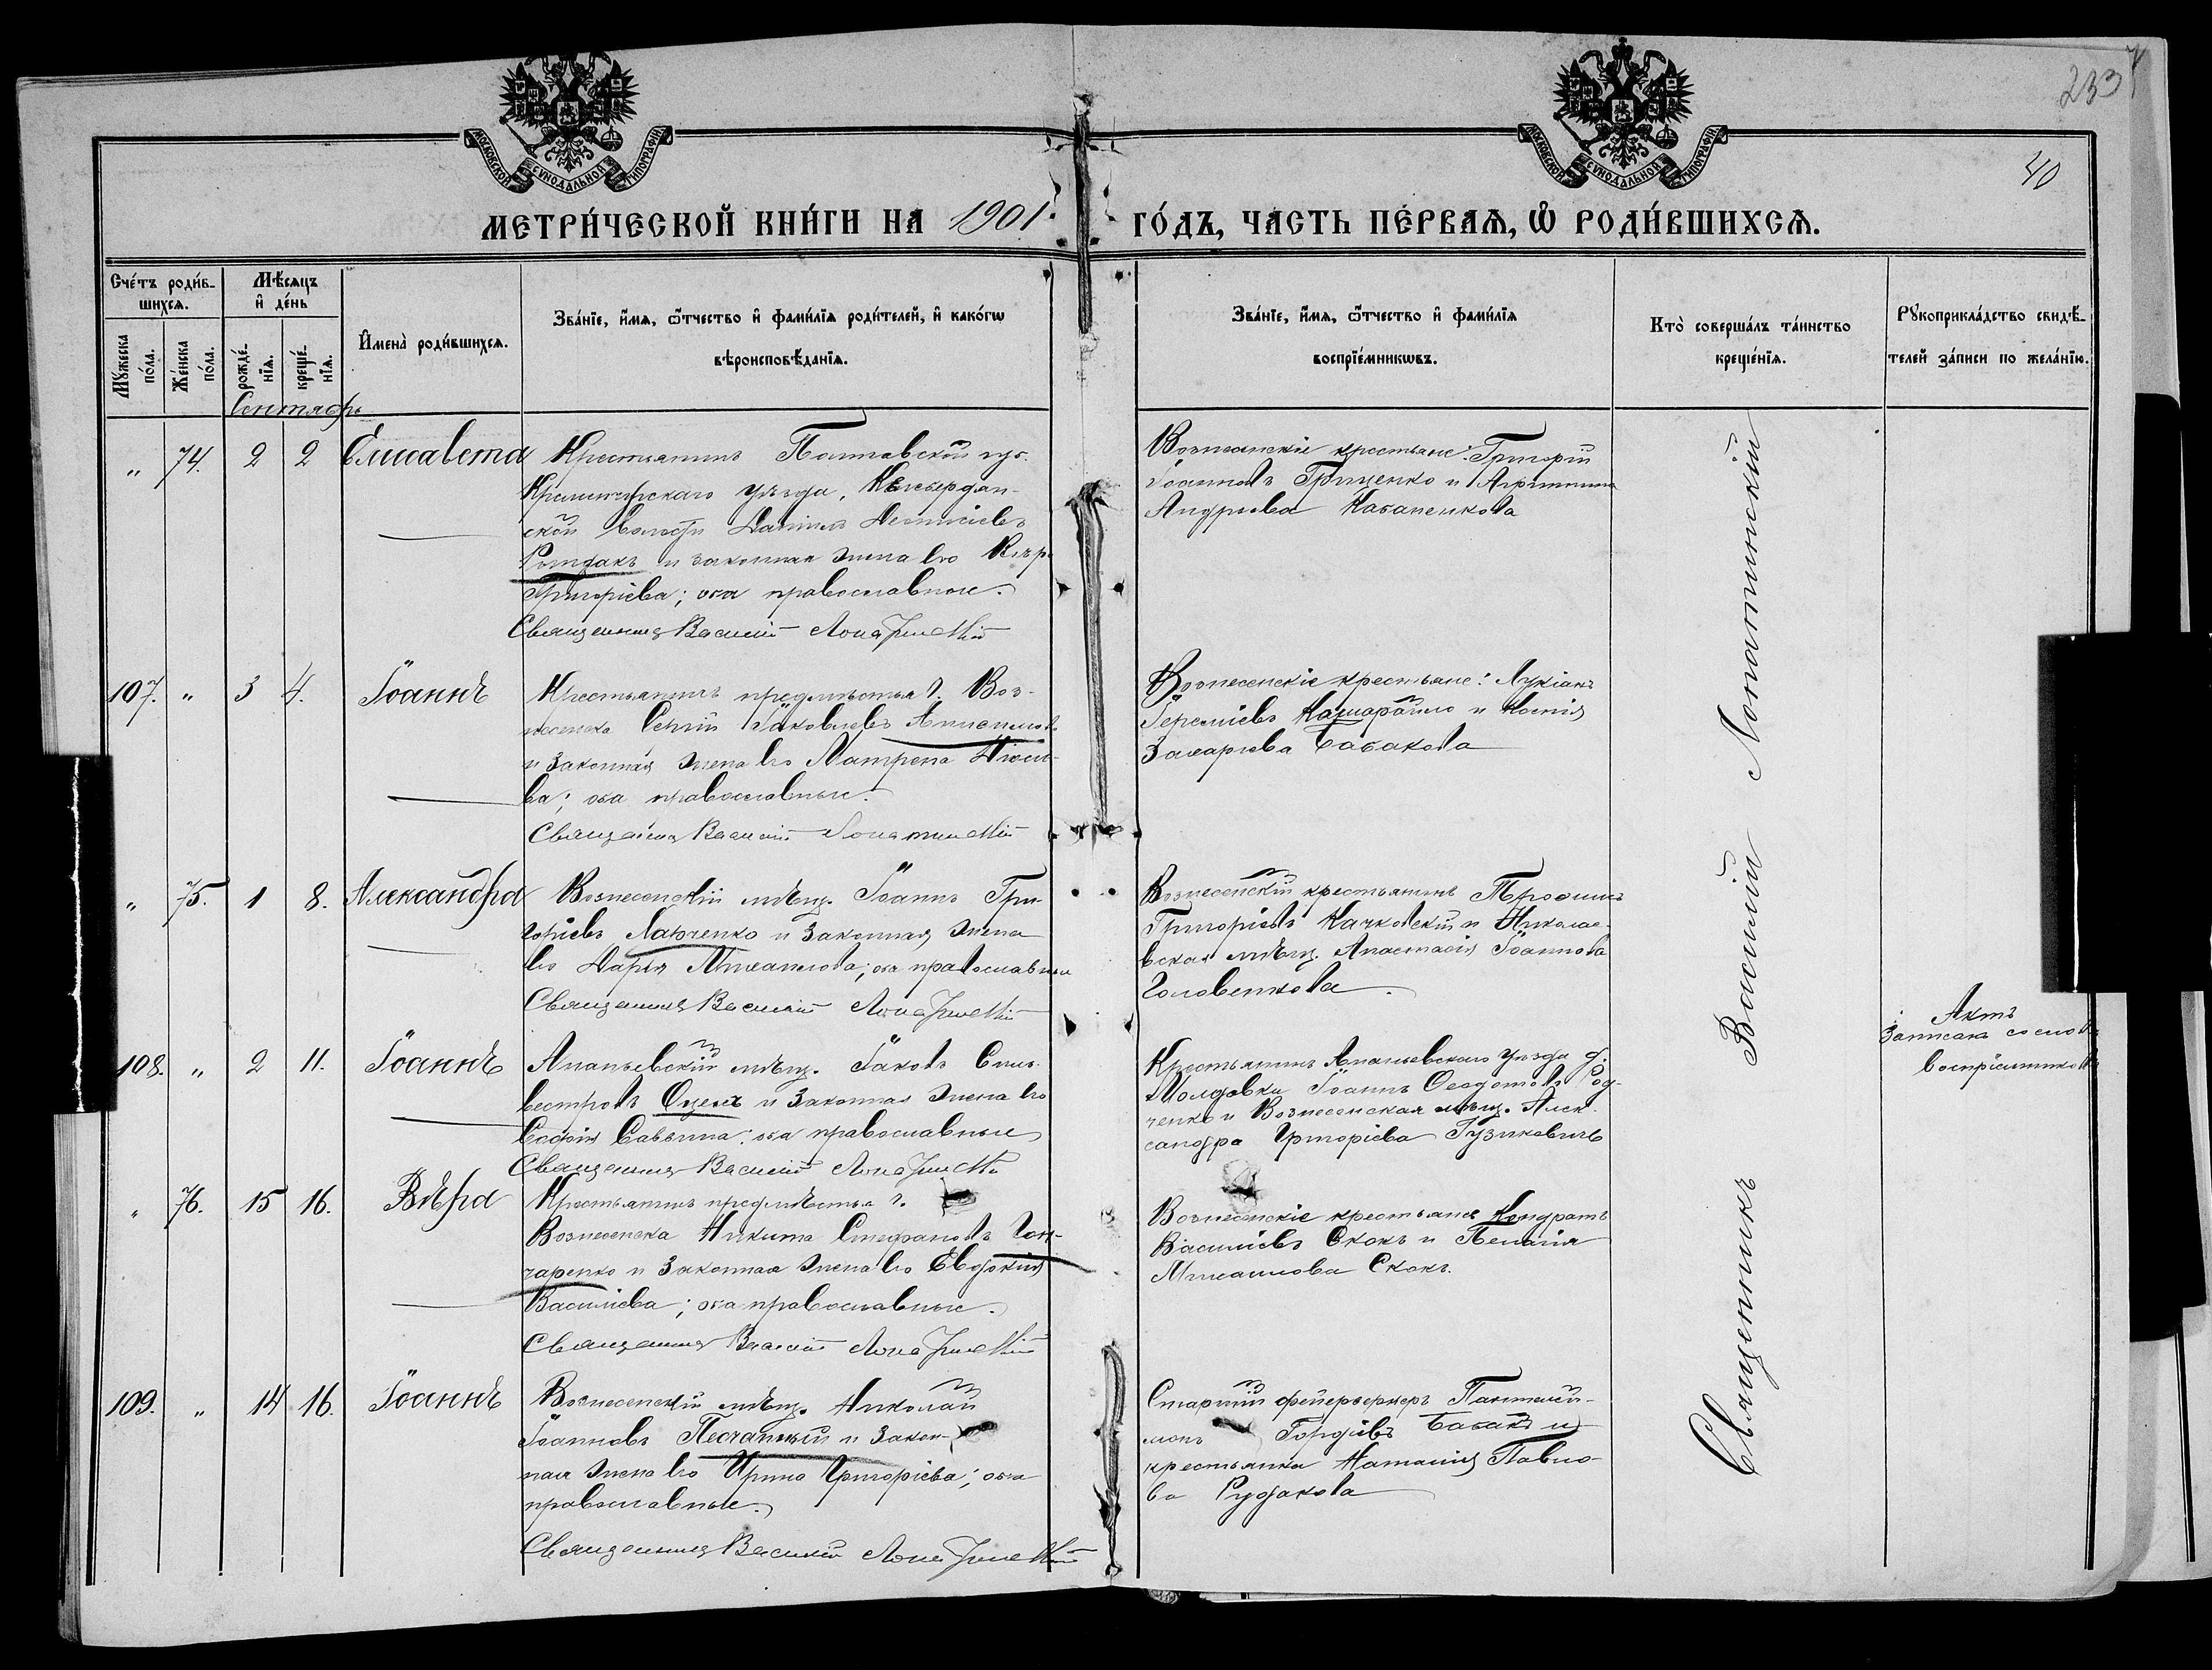 233
40
МОСКОВСКОЙ СѴНОДАЛЬНОЙ ТИПОГРАФІИ
МОСКОВСКОЙ СѴНОДАЛЬНОЙ ТИПОГРАФІИ
МЕТРИ́ЧЕСКОЙ КНИ́ГИ НА 1901
ГО́ДЪ, ЧАСТЬ ПЕ́РВАѦ, Ѿ РОДИ́ВШИХСѦ.
Сче́тъ роди́в-
шихсѧ.
Мꙋ́жеска по́ла.
Же́нска по́ла.
Мѣ́сѧцъ
и҆ де́нь
рожде́-
нїѧ.
креще́-
нїѧ.
И҆мена̀ роди́вшихсѧ.
Зва́нїе, и҆́мѧ, ѻ҆́тчество и҆ фами́лїѧ роди́телей, и҆ како́гѡ
вѣроисповѣ́данїѧ.
Зва́нїе, и҆́мѧ, ѻ҆́тчество и҆ фами́лїѧ
воспрїе́мникѡвъ.
Кто̀ соверша́лъ та́инство
креще́нїѧ.
Рꙋкоприкла́дство свидѣ́-
телей за́писи по жела́нїю.
Сентябрь
„ 74. 2 2 Елисавета
Крестьянинъ Полтавской губ.
Кременчугскаго уѣзда,
ской волости Даніилъ Деонисіевъ
и законная жена его
Григоріева; оба православные.
Священникъ Василій Лопатинскій
Вознесенскіе крестьяне: Григорій
Іоанновъ Гриценко и Агриппина
Андреева Кабаненкова
107. „ 3 4. Іоаннъ
Крестьянинъ предмѣстья г. Воз-
несенска Сергій Іаковлевъ
и законная жена его Матрона
ва; оба православные.
Священникъ Василій Лопатинскій
Вознесенскіе крестьяне: Лукіанъ
Іереміевъ и Ксенія
Захаріева Бабакова
„ 75. 1 8. Александра
Вознесенскій мѣщ. Іоаннъ Гри-
горіевъ Лавченко и законная жена
его Дарья Михаилова; оба православные
Священникъ Василій Лопатинскій
Вознесенскій крестьянинъ Трофимъ
Григорьевъ Качковскій и Николае-
вская мѣщ. Анастасія Іоаннова
Головенкова
108. „ 2 11. Іоаннъ
Ананьевскій мѣщ. Іаковъ Силь-
вестровъ и законная жена его
Софія Саввина; оба православные
Священникъ Василій Лопатинскій
Крестьянинъ Ананьевскаго уѣзда д.
Молдовки Іоаннъ Ѳеодотовъ
ченко и Вознесенская мѣщ. Алек-
сандра Григоріева Гузиковичъ
Актъ
записанъ со словъ
воспріемниковъ
„ 76. 15 16. Вѣра
Крестьянинъ предмѣстья г.
Вознесенска Никита Стефановъ Гон-
чаренко и законная жена его Евдокія
Василіева; оба православные.
Священникъ Василій Лопатинскій
Вознесенскіе крестьяне Кондратъ
Василіевъ Скокъ и Пелагія
Михаилова Скокъ.
109. „ 14 16. Іоаннъ
Вознесенскій мѣщ. Николай
Іоанновъ Песчанскій и закон-
ная жена его Ирина Григоріева; оба
православные.
Священникъ Василій Лопатинскій
Старшій фейерверкеръ Пантелей-
монъ Гордіевъ Бабакъ и
крестьянка Наталія Павло-
ва Рудакова
Священникъ Василій Лопатинскій